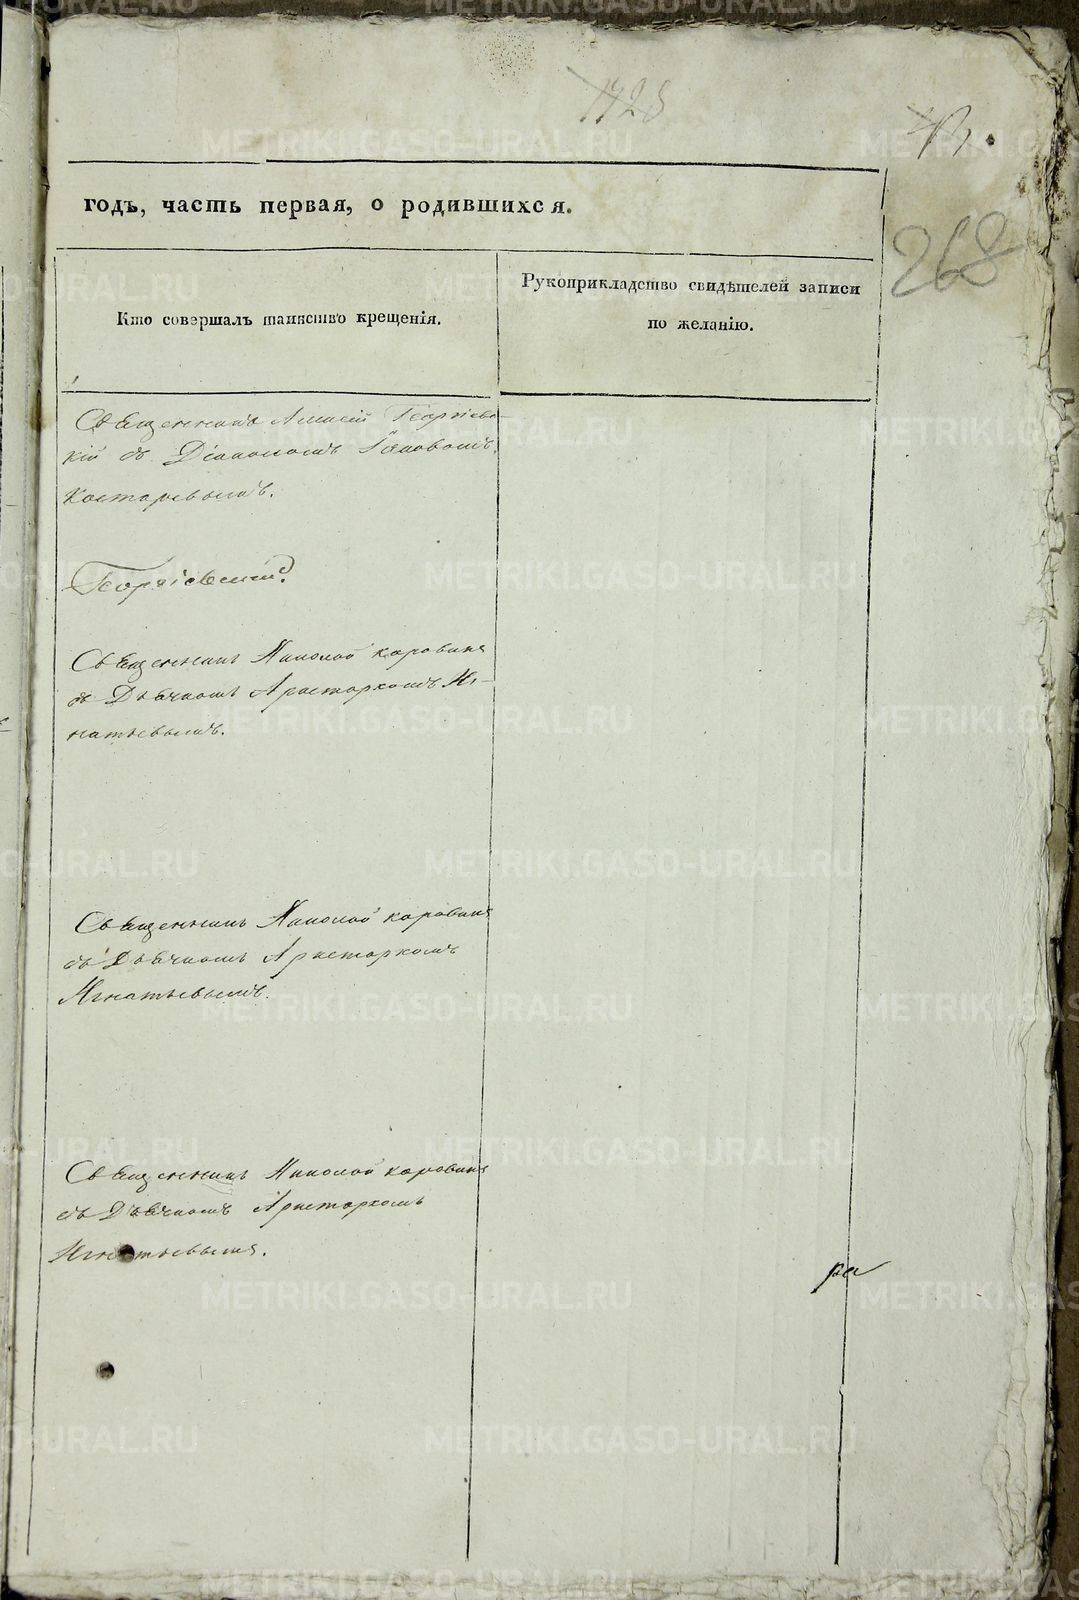 268
годъ, часть первая, о родившихся.
Кто совершалъ таинство крещенія.
Рукоприкладство свидѣтелей записи
по желанію.
Священникъ Алексій Георгіевс-
кій съ Діакономъ Іаковомъ
Костаревымъ.
Георгіевскій.
Священникъ Николай Коровинъ
съ Дьячкомъ Аристархомъ Иг-
натьевымъ.
Священникъ Николай Коровинъ
съ Дьячкомъ Аристархомъ
Игнатьевымъ.
Священникъ Николай Коровинъ
съ Дьячкомъ Аристархомъ
Игнатьевымъ.
ра
METRIKI.GASO-URAL.RU